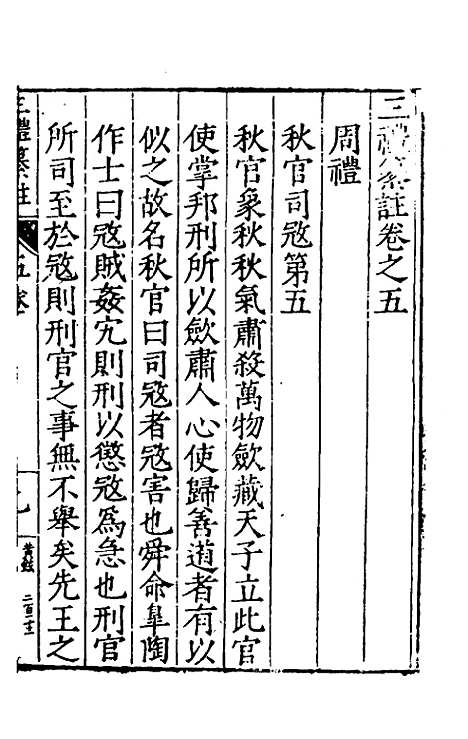 三禮纂註卷之五
周禮
秋官司寇第五
秋官象秋秋氣肅殺萬物歛藏天子立此官
使掌邦刑所以歛肅人心使歸善道者有以
似之故名秋官曰司寇者寇害也舜命臯陶
作士曰寇賊姦宄則刑以懲寇為急也刑官
所司至於寇則刑官之事無不舉矣先王之
三禮纂註
五卷